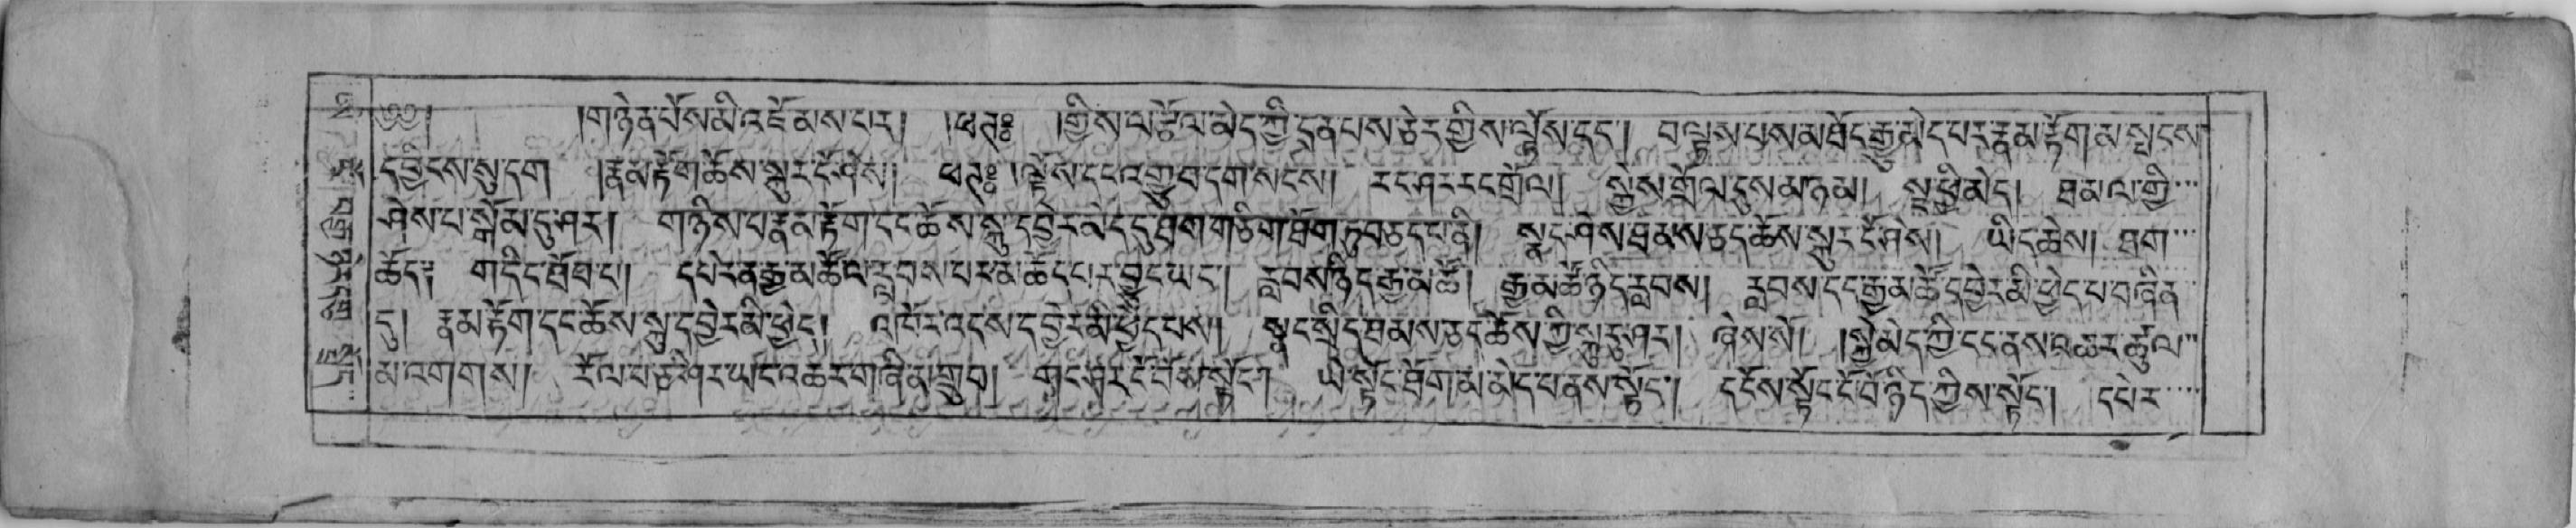 །གཉེན་པོས་མི་འཇོམས་པར། །ཕཊ༔ །གྱིས་ལ་རྩོལ་མེད་ཀྱི་དྲན་པས་ཅེར་གྱིས་ལྟོས་དང་། བལྟས་པས་མཐོང་རྒྱུ་མེད་པར་རྣམ་རྟོག་མ་སྤངས
དབྱིངས་སུ་དག །རྣམ་རྟོག་ཆོས་སྐུར་ངོ་ཤེས། ཕཊ༔ །ལྟོས་དང་འགྱུ་བ་དག་སངས། རང་ཤར་རང་གྲོལ། སྐྱེས་གྲོལ་དུས་མཉམ། སྔ་ཕྱི་མེད། ཐམལ་གྱི་
ཤེས་པ་སྒོམ་དུ་ཤར། གཉིས་པ་རྣམ་རྟོག་དང་ཆོས་སྐུ་དབྱེར་མེད་དུ་ཐག་གཅིག་ཐོག་ཏུ་བཅད་པ་ནི། སྣང་ཤེས་ཐམས་ཅད་ཆོས་སྐུར་ངོ་ཤེས། ཡིད་ཆེས། ཐག་
ཆོད༔ གདིང་ཐོབ་པ། དཔེར་ན་རྒྱ་མཚོ་ལ་རླབས་པར་མ་ཆོད་པར་བྱུང་ཡང་། རླབས་ཉིད་རྒྱ་མཚོ། རྒྱ་མཚོ་ཉིད་རླབས། རླབས་དང་རྒྱ་མཚོ་དབྱེར་མི་ཕྱེད་པ་བཞིན་
དུ། རྣམ་རྟོག་དང་ཆོས་སྐུ་དབྱེར་མི་ཕྱེད། འཁོར་འདས་དབྱེར་མི་ཕྱེད་པས། སྣང་སྲིད་ཐམས་ཅད་ཆོས་ཀྱི་སྐུར་ཤར། ཞེས་སོ། །སྐྱེ་མེད་ཀྱི་ངང་ནས་འཆར་ཚུལ་
མ་འགགས། རོལ་པ་ཅིར་ཡང་འཆར་གཞིན་གྲུབ། གང་ཤར་ངོ་བོས་སྟོང་། ཡེ་སྟོང་ཐོག་མ་མེད་པ་ནས་སྟོང་། དངོས་སྟོང་ངོ་བོ་ཉིད་ཀྱིས་སྟོང་། དཔེར་